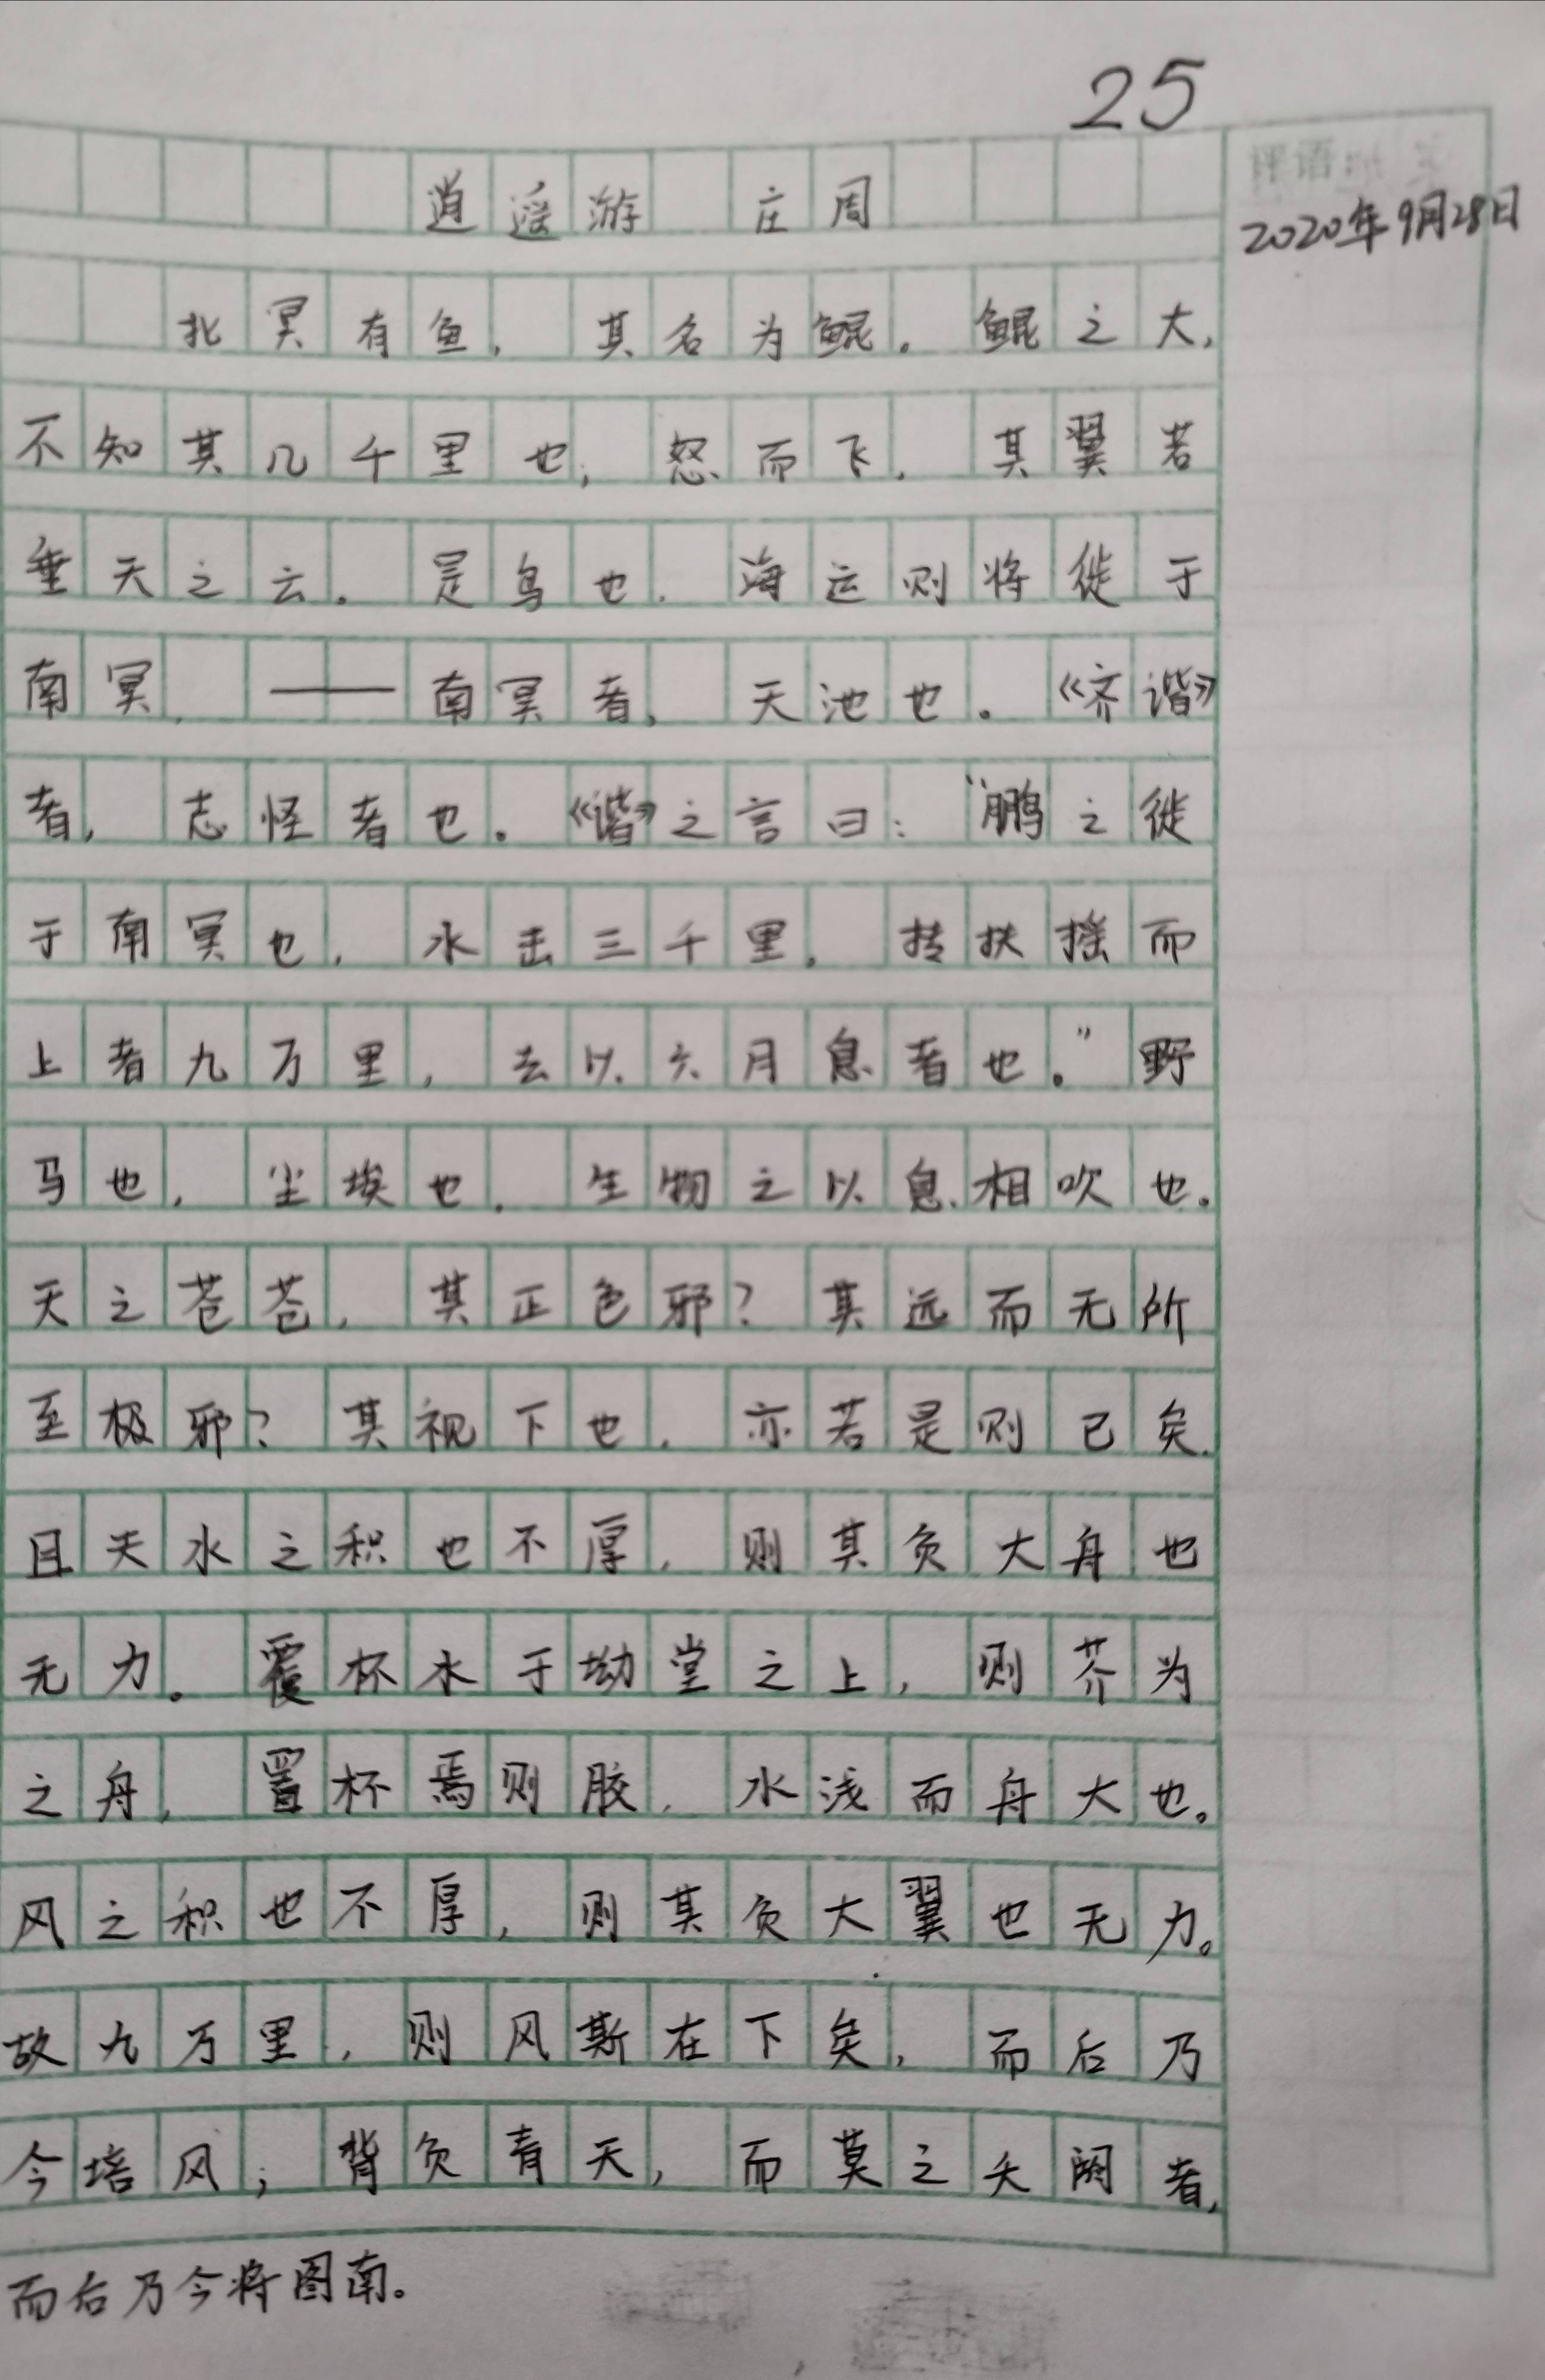 25
逍遥游 庄周
2020年9月28日
北冥有鱼，其名为鲲。鲲之大，
不知其几千里也；怒而飞，其翼若
垂天之云。是鸟也，海运则将徙于
南冥，——南冥者，天池也。《齐谐》
者，志怪者也。《谐》之言曰：“鹏之徙
于南冥也，水击三千里，抟扶摇而
上者九万里，去以六月息者也。”野
马也，尘埃也，生物之以息相吹也。
天之苍苍，其正色邪？其远而无所
至极邪？其视下也，亦若是则已矣。
且夫水之积也不厚，则其负大舟也
无力。覆杯水于坳堂之上，则芥为
之舟，置杯焉则胶，水浅而舟大也。
风之积也不厚，则其负大翼也无力。
故九万里，则风斯在下矣，而后乃
今培风；背负青天，而莫之夭阏者，
而后乃今将图南。